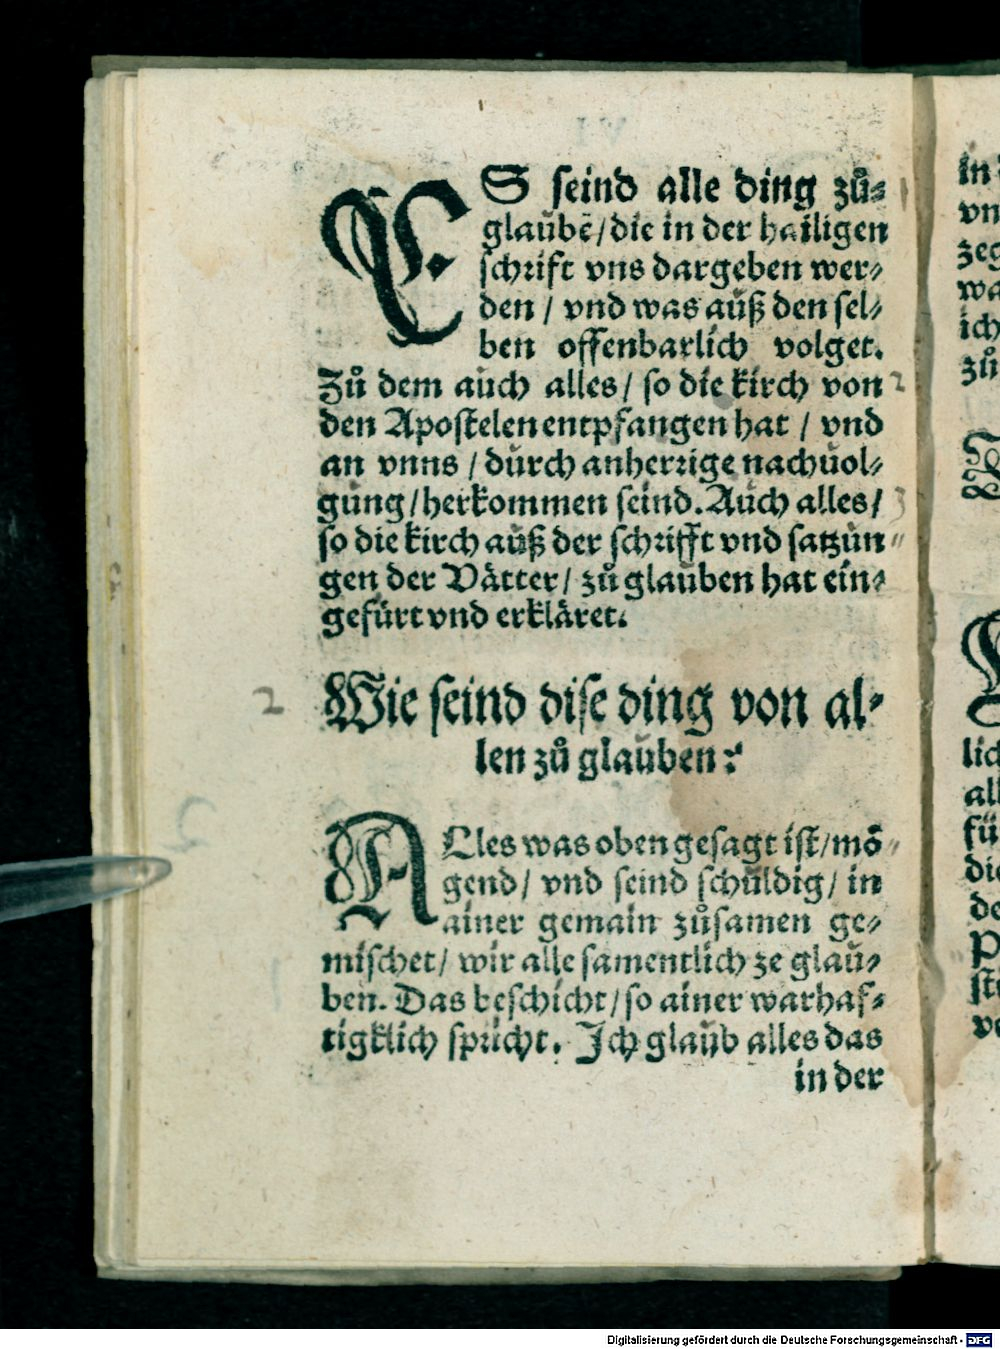 ES seind alle ding zů⸗
glaubē/die in der hailigen
schrift vns dargeben wer⸗
den / vnd was auß den sel⸗
ben offenbarlich volget.
Zů dem auch alles/ so die kirch von 2
den Apostelen entpfangen hat / vnd
an vnns / durch anherrige nachuol⸗
gung/herkommen seind. Auch alles/ 3
so die kirch auß der schrifft vnd satzun⸗
gen der Vätter/ zů glauben hat ein⸗
gefürt vnd erkläret.
2 Wie seind dise ding von al⸗
len zů glauben?
ALles was oben gesagt ist/mö⸗
gend/ vnd seind schuldig/ in
ainer gemain zůsamen ge⸗
mischet/ wir alle samentlich ze glau⸗
ben. Das beschicht/so ainer warhaf⸗
tigklich spricht. Ich glaub alles das
in der
in
vn
zeg
wa
ich
zů
lich
all
fü
die
de
p
ste
ve
Digitalisierung gefördert durch die Deutsche Forschungsgemeinschaft - DFG